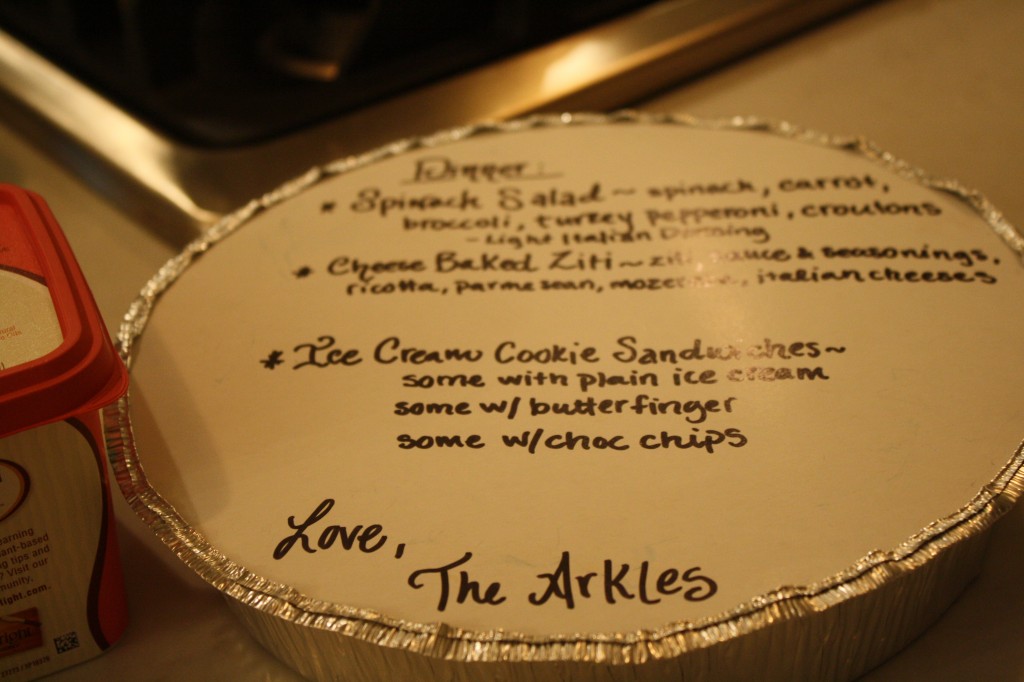 Dinner:
* Spinach Salad ~ spinach, carrot,
broccoli, turkey pepperoni, croutons
- Light Italian Dressing
* Cheese Baked Ziti ~ ziti, sauce & seasonings,
ricotta, parmesean, italian cheeses
* Ice Cream Cookie Sandwiches ~
some with plain ice cream
some w/ butterfinger
some w/ choc chips
Love,
The Arkles
arning
ant-based
g tips and
? Visit our
munity.
light.com.